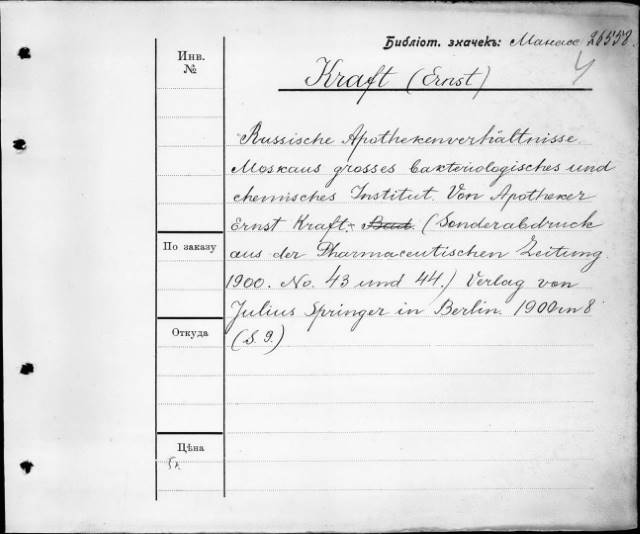 Библіот. значекъ: Манасс 26558.
Инв.
№
Kraft (Ernst)
Russische Apothekenverhältnisse.
Moskaus grosses bakteriologisches und
chemisches Institut. Von Apotheker
Ernst Kraft. Bad. (Sonderabdruck
По заказу
aus der Pharmaceutischen Zeitung.
1900. No. 43 und 44.) Verlag von
Julius Springer in Berlin. 1900 in 8
Откуда
(S. 9.)
Цѣна